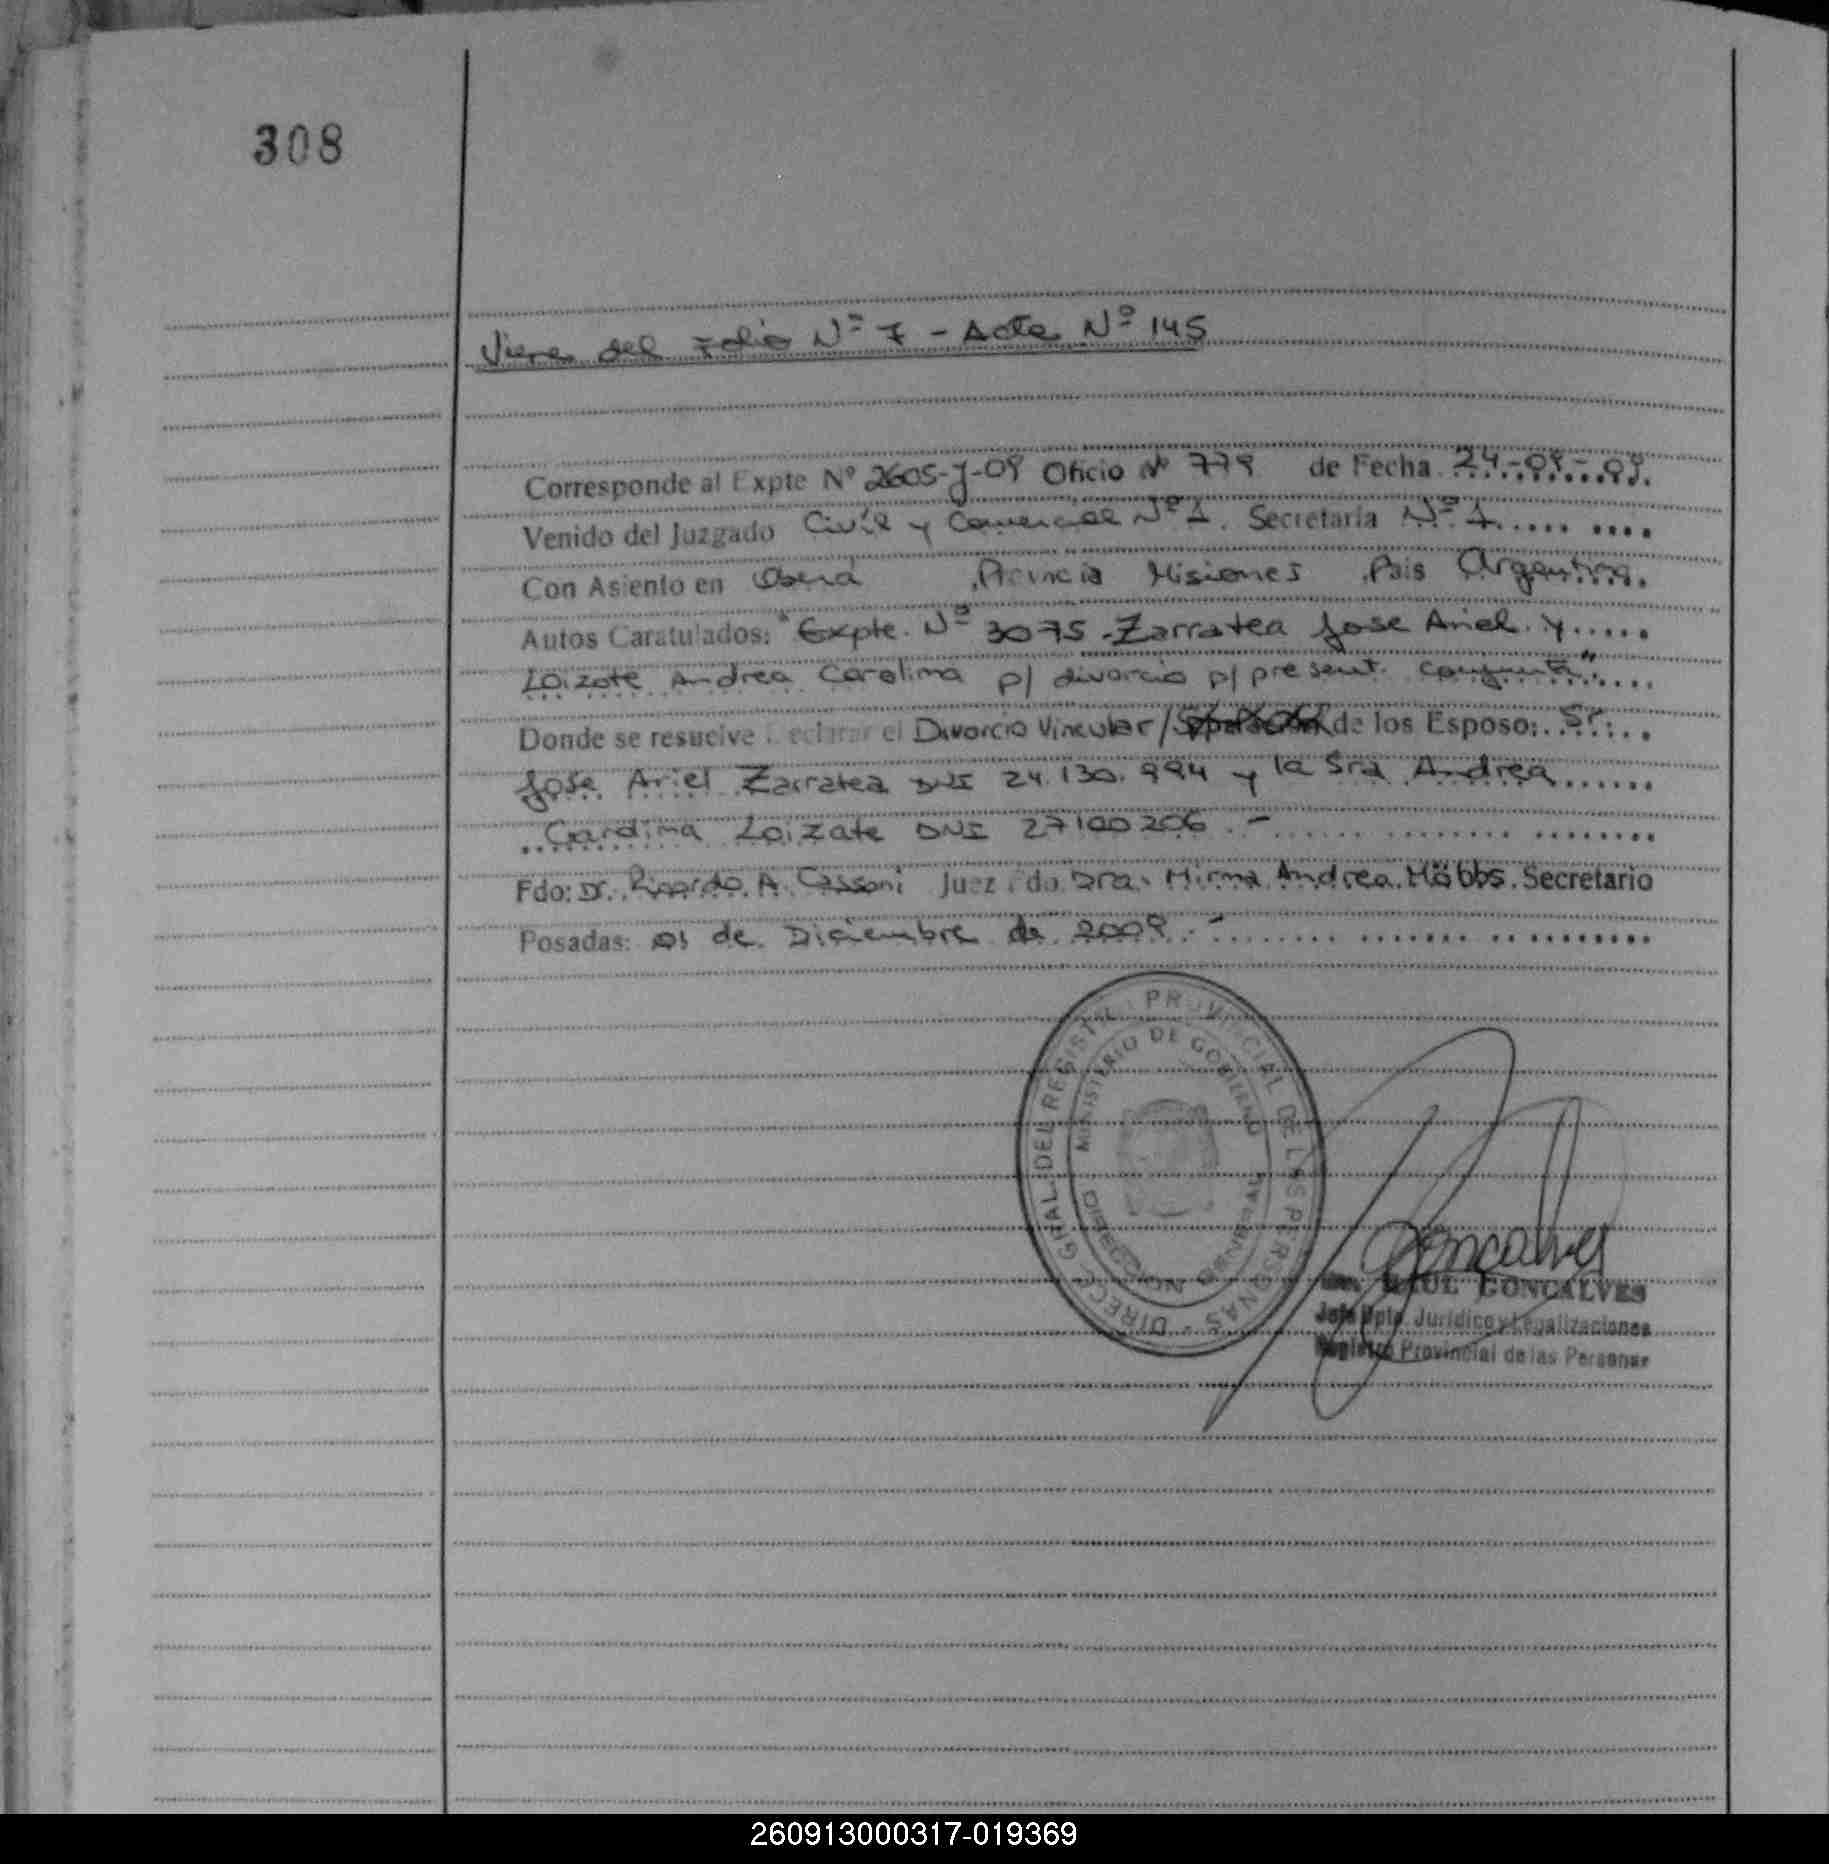 308
Viene del Folio Nº 7 - Acta Nº 145
Corresponde al Expte Nº 2605-J-09 Oficio Nº 779 de Fecha 24-09-09.
Venido del Juzgado Civil y Comercial Nº 1. Secretaría Nº 1
Con Asiento en Oberá , Provincia Misiones , Pais Argentina.
Autos Caratulados: "Expte. Nº 3075 - Zarratea Jose Ariel y
Loizate Andrea Carolina p/ divorcio p/ present. conjunta"
Donde se resuelve Declarar el Divorcio Vincular / de los Esposo: Sr.
Jose Ariel Zarratea DNI 24.130.994 y la Sra Andrea
Carolina Loizate DNI 27100206 . -
Fdo: Dr. Ricardo A. Cassoni Juez Fdo. Dra. Mirna Andrea Möbbs. Secretario
Posadas: 01 de Diciembre de 2009 . -
DIRECC. GRAL. DEL REGISTRO PROVINCIAL DE LAS PERSONAS
MINISTERIO DE GOBIERNO
DIRECCION GENERAL
Goncalves
RAUL GONCALVES
Jefe Dpto. Juridico y Legalizaciones
Registro Provincial de las Personas
260913000317-019369